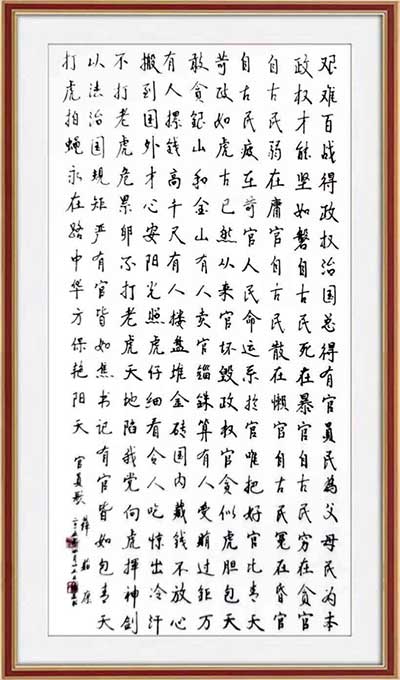 艰难百战得政权治国总得有官员民为父母民为本
政权才能坚如磐自古民死在暴官自古民穷在贪官
自古民弱在庸官自古民散在懒官自古民冤在昏官
自古民疲在苛官人民命运系于官唯把好官比青天
苛政如虎古已然从来官坏毁政权官贪似虎胆包天
敢贪银山和金山有人卖官锱铢算有人受贿过钜万
有人摞钱高千尺有人楼盘堆金砖国内藏钱不放心
搬到国外才心安阳光照虎仔细看令人吃惊出冷汗
不打老虎危累卵不打老虎天地陷我党向虎挥神剑
以法治国规矩严有官皆如焦书记有官皆如包青天
打虎拍蝇永在路中华方保艳阳天
官员歌